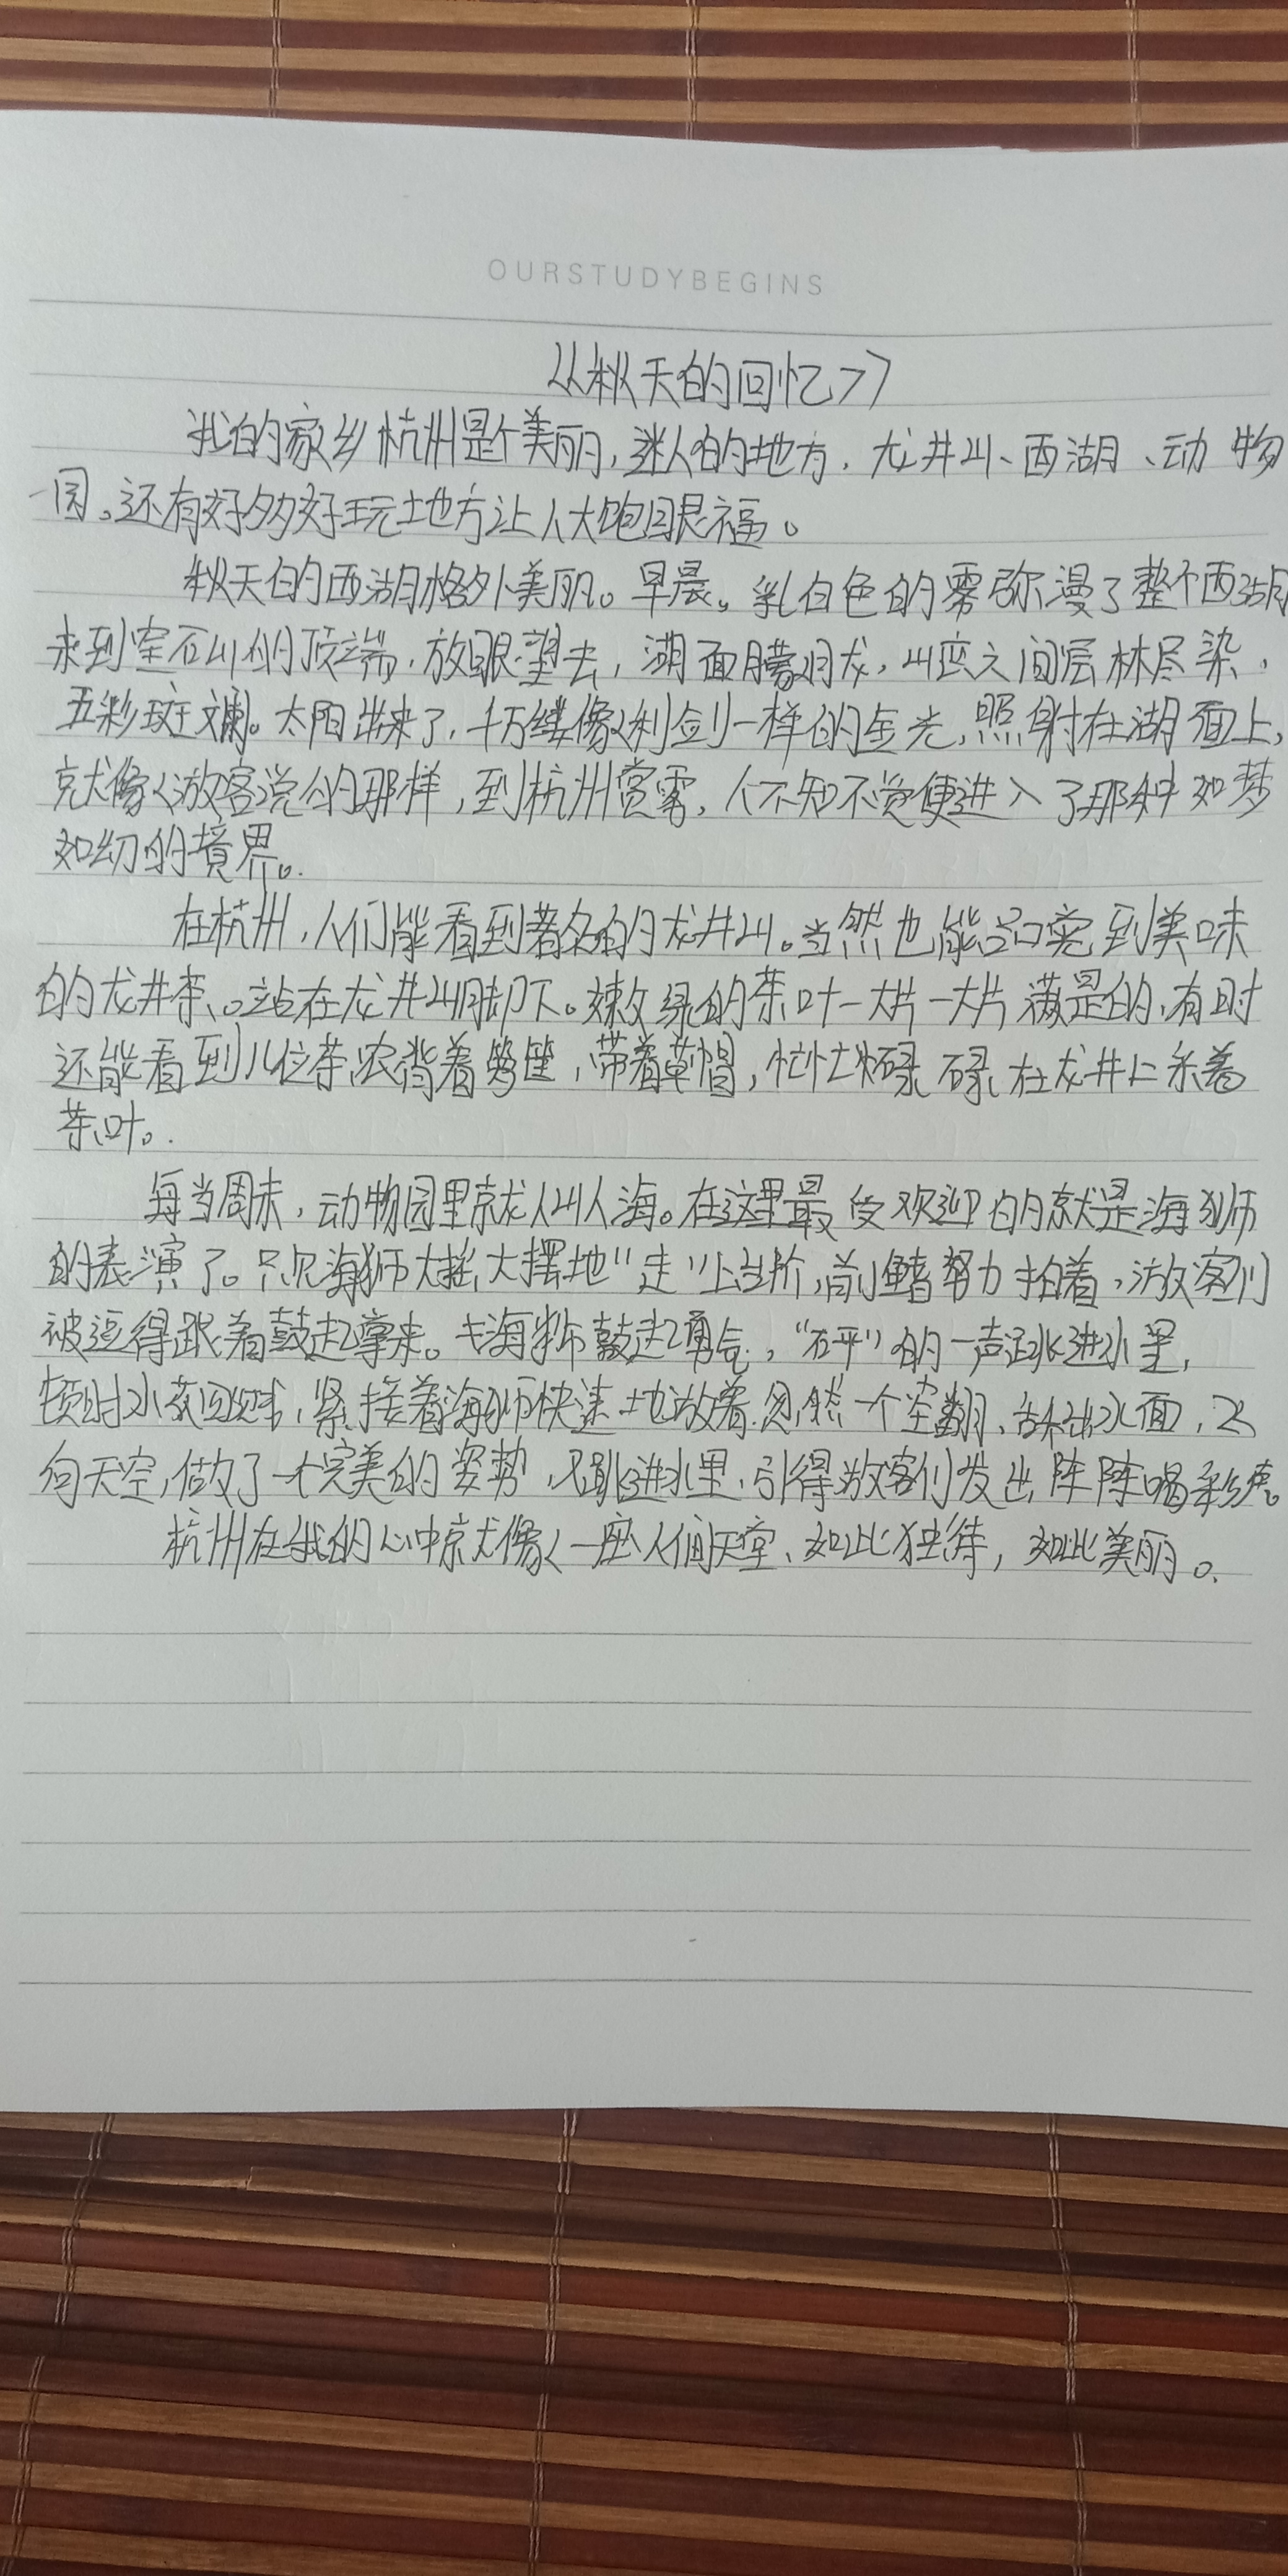 OURSTUDYBEGINS
《秋天的回忆》
我的家乡杭州是个美丽,迷人的地方,龙井山、西湖、动物
园。还有好多好玩地方让人大饱眼福。
秋天的西湖格外美丽。早晨。乳白色的雾弥漫了整个西湖
来到宝石山的顶端,放眼望去,湖面朦胧,山峦之间层林尽染,
五彩斑斓。太阳出来了,千万缕像利剑一样的金光,照射在湖面上,
就像游客说的那样,到杭州赏雾,人不知不觉便进入了那种如梦
如幻的境界。
在杭州,人们能看到著名的龙井山。当然也能品尝到美味
的龙井茶。站在龙井山脚下。嫩绿的茶叶一大片一大片满是的,有时
还能看到几位茶农背着箩筐,带着草帽,忙忙碌碌在龙井上采着
茶叶。
每当周末,动物园里就人山人海。在这里最受欢迎的就是海狮
的表演了。只见海狮大摇大摆地“走”上台阶,前鳍努力拍着,游客们
被逗得跟着鼓起掌来。海狮鼓起勇气,“砰”的一声跳进水里,
顿时水花四溅,紧接着海狮快速地游着,忽然一个空翻、出水面,飞
向天空,做了一个完美的姿势,又跳进水里,引得游客们发出阵阵喝彩声。
杭州在我的心中就像一座人间天堂、如此独特,如此美丽。